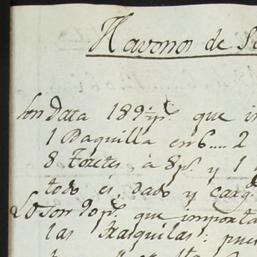 Havonos de
Son Data 189 ps. que
1 Baquilla en 6.... 2
8 Toretes, á 8 ps. y 1
todo es dado y carg
Son 90 ps. que importa
las Baquillas: pue